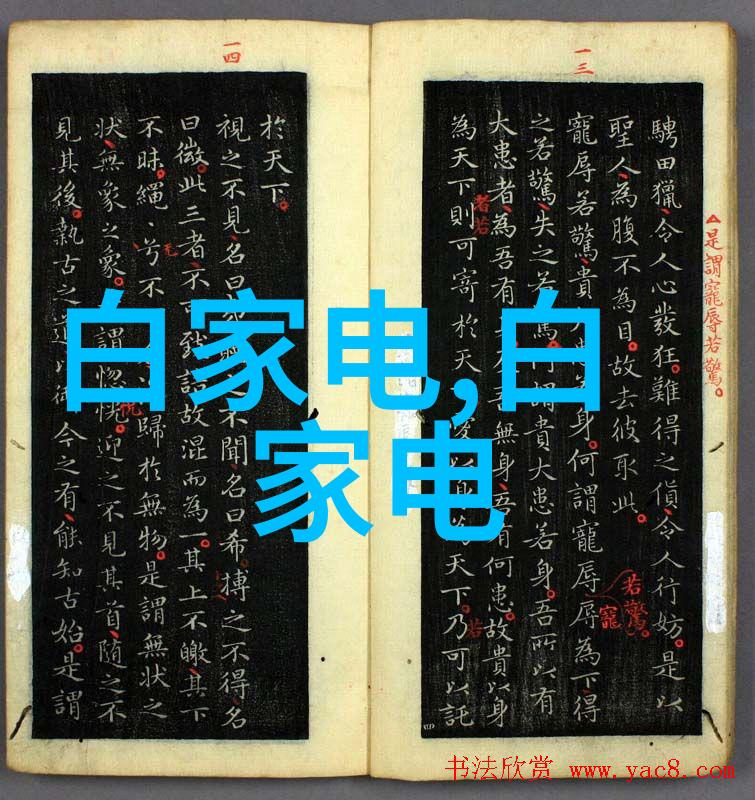 一三
△是謂寵辱若驚。
騁田獵令人心發狂。難得之貨令人行妨。是以
聖人為腹不為目。故去彼取此。
寵辱若驚貴身。何謂寵辱辱為下得
之若驚失之若謂貴大患若身。吾所以有
大患者為吾有吾無身吾有何患。故貴以身
為天下則可寄於天以身為天下。乃可以託
若驚。
寵
者若
若
一四
於天下。
視之不見名曰不聞名曰希搏之不得名
曰微。此三者不可致詰故混而為一。其上不皦其下
不昧。繩〻兮不歸於無物。是謂無状之
状無象之象。謂惚恍。迎之不見其首隨之不
見其後。執古之道以御今之有。能知古始。是謂
恍
白家电,白
家电
书法欣赏 www.yac8.com